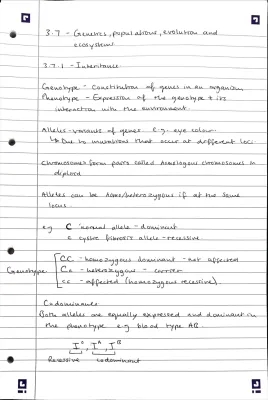 3.7 - Genetics, populations, evolution and
ecosystems
3.7.1 - Inheritance
Genotype - Constitution of genes in an organism
Phenotype - Expression of the genotype + its
interaction with the environment
Alleles - variants of genes e.g. eye colour
↳ Due to mutations that occur at different loci
Chromosomes form pairs called homologous chromosomes in
diploid
Alleles can be homo/heterozygous if at the same
locus.
eg C normal allele - dominant
c cystic fibrosis allele - recessive
Genotype
CC - homozygous dominant - not affected
Cc - heterozygous - carrier
cc - affected (homozygous recessive).
Codominance
Both alleles are equally expressed and dominant in
the phenotype e.g blood type AB
I° , Iᴬ , Iᴮ
Recessive codominant